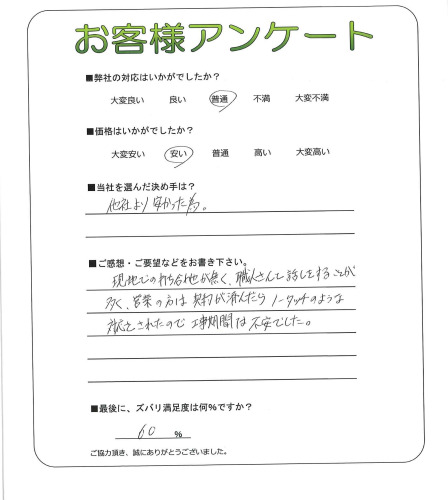 お客様アンケート
■弊社の対応はいかがでしたか？
大変良い 良い 普通 不満 大変不満
■価格はいかがでしたか？
大変安い 安い 普通 高い 大変高い
■当社を選んだ決め手は？
他社より安かった為。
■ご感想・ご要望などをお書き下さい。
現地での打ち合せが無く、職人さんと話しをすることが
多く、営業の方は契約が済んだらノータッチのような
対応をされたので工事期間は不安でした。
■最後に、ズバリ満足度は何％ですか？
60 ％
ご協力頂き、誠にありがとうございました。